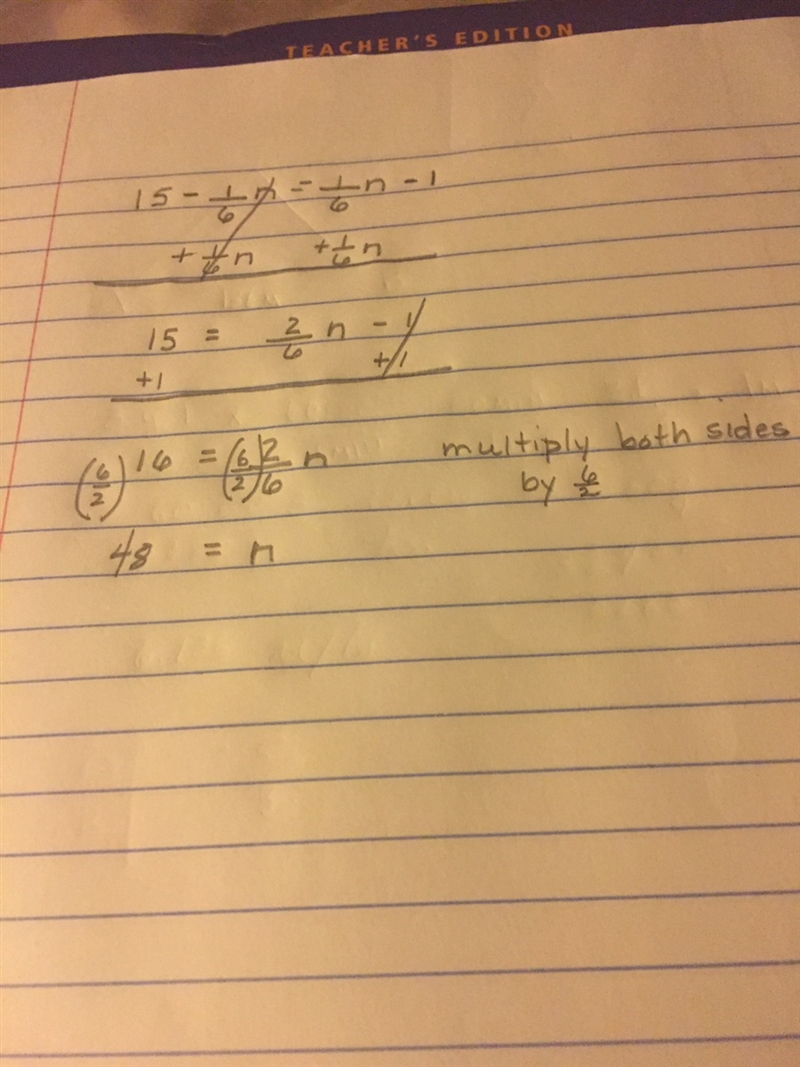 TEACHER'S EDITION
15 - 1/6 n = 1/6 n - 1
+ 1/6 n + 1/6 n
15 = 2/6 n - 1
+1 +1
(6/2) 16 = (6/2) 2/6 n multiply both sides
by 6/2
48 = n